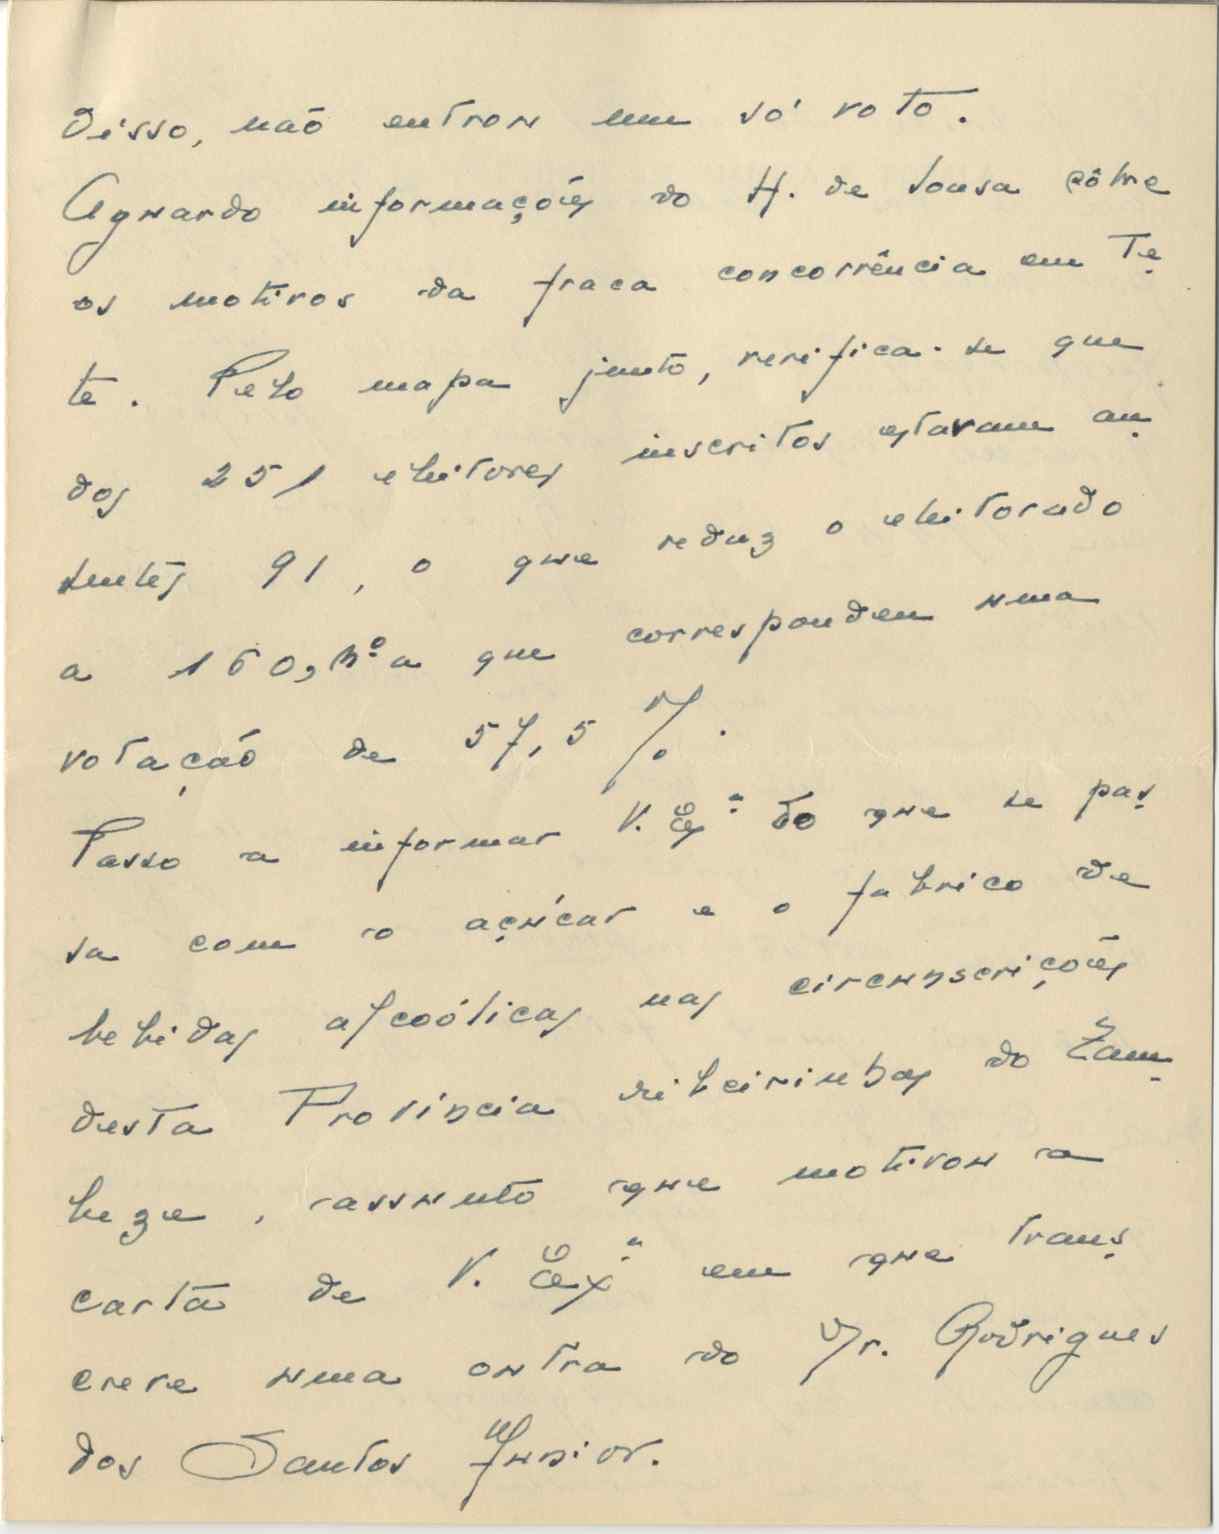 disso, não entrou um só voto.
Aguardo informações do H. de Sousa sôbre
os motivos da fraca concorrência em Te
te. Pelo mapa junto, verifica-se que
dos 251 eleitores inscritos estavam au
sentes 91, o que reduz o eleitorado
a 160, nº a que correspondeu uma
votação de 57,5 %.
Passo a informar V. Exª do que se pas
sa com o açúcar e o fabrico de
bebidas alcoólicas nas circunscrições
desta Provincia ribeirinhas do Zam
beze, assunto que motivou a
carta de V. Exª em que trans
creve uma outra do Dr. Rodrigues
dos Santos Junior.